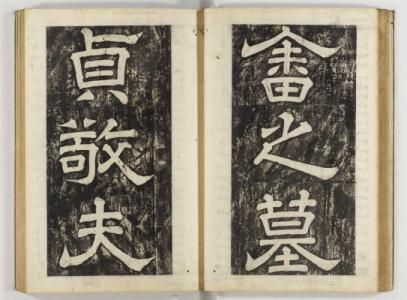 畬之墓
貞敬夫